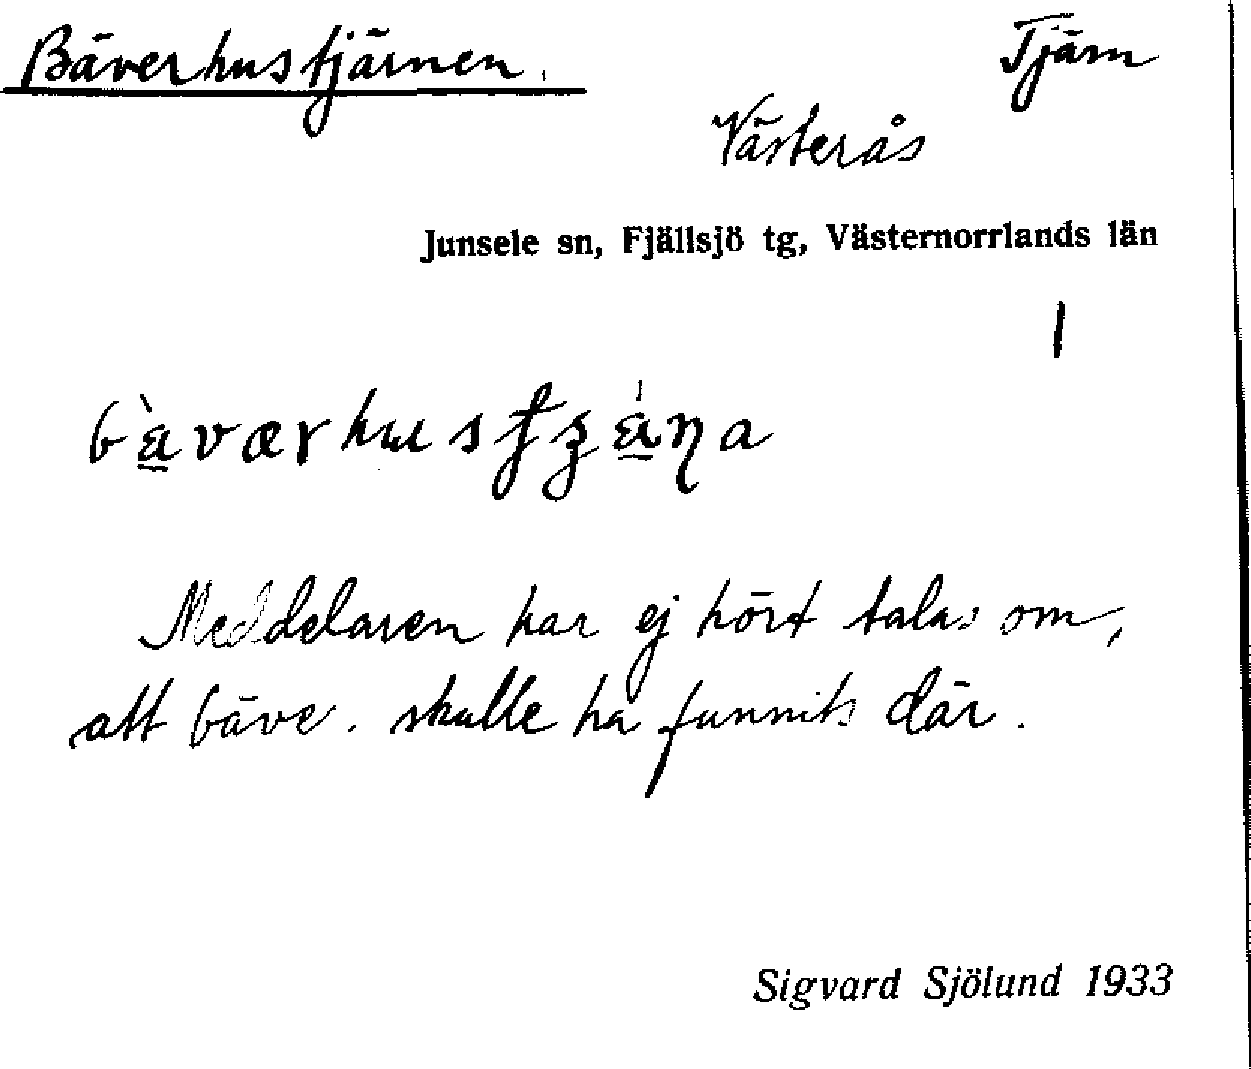 Bäverhustjärnen. Tjärn
Västerås
Junsele sn, Fjällsjö tg, Västernorrlands län
1
Meddelaren har ej hört talas om,
att bäver skulle ha funnits där.
Sigvard Sjölund 1933